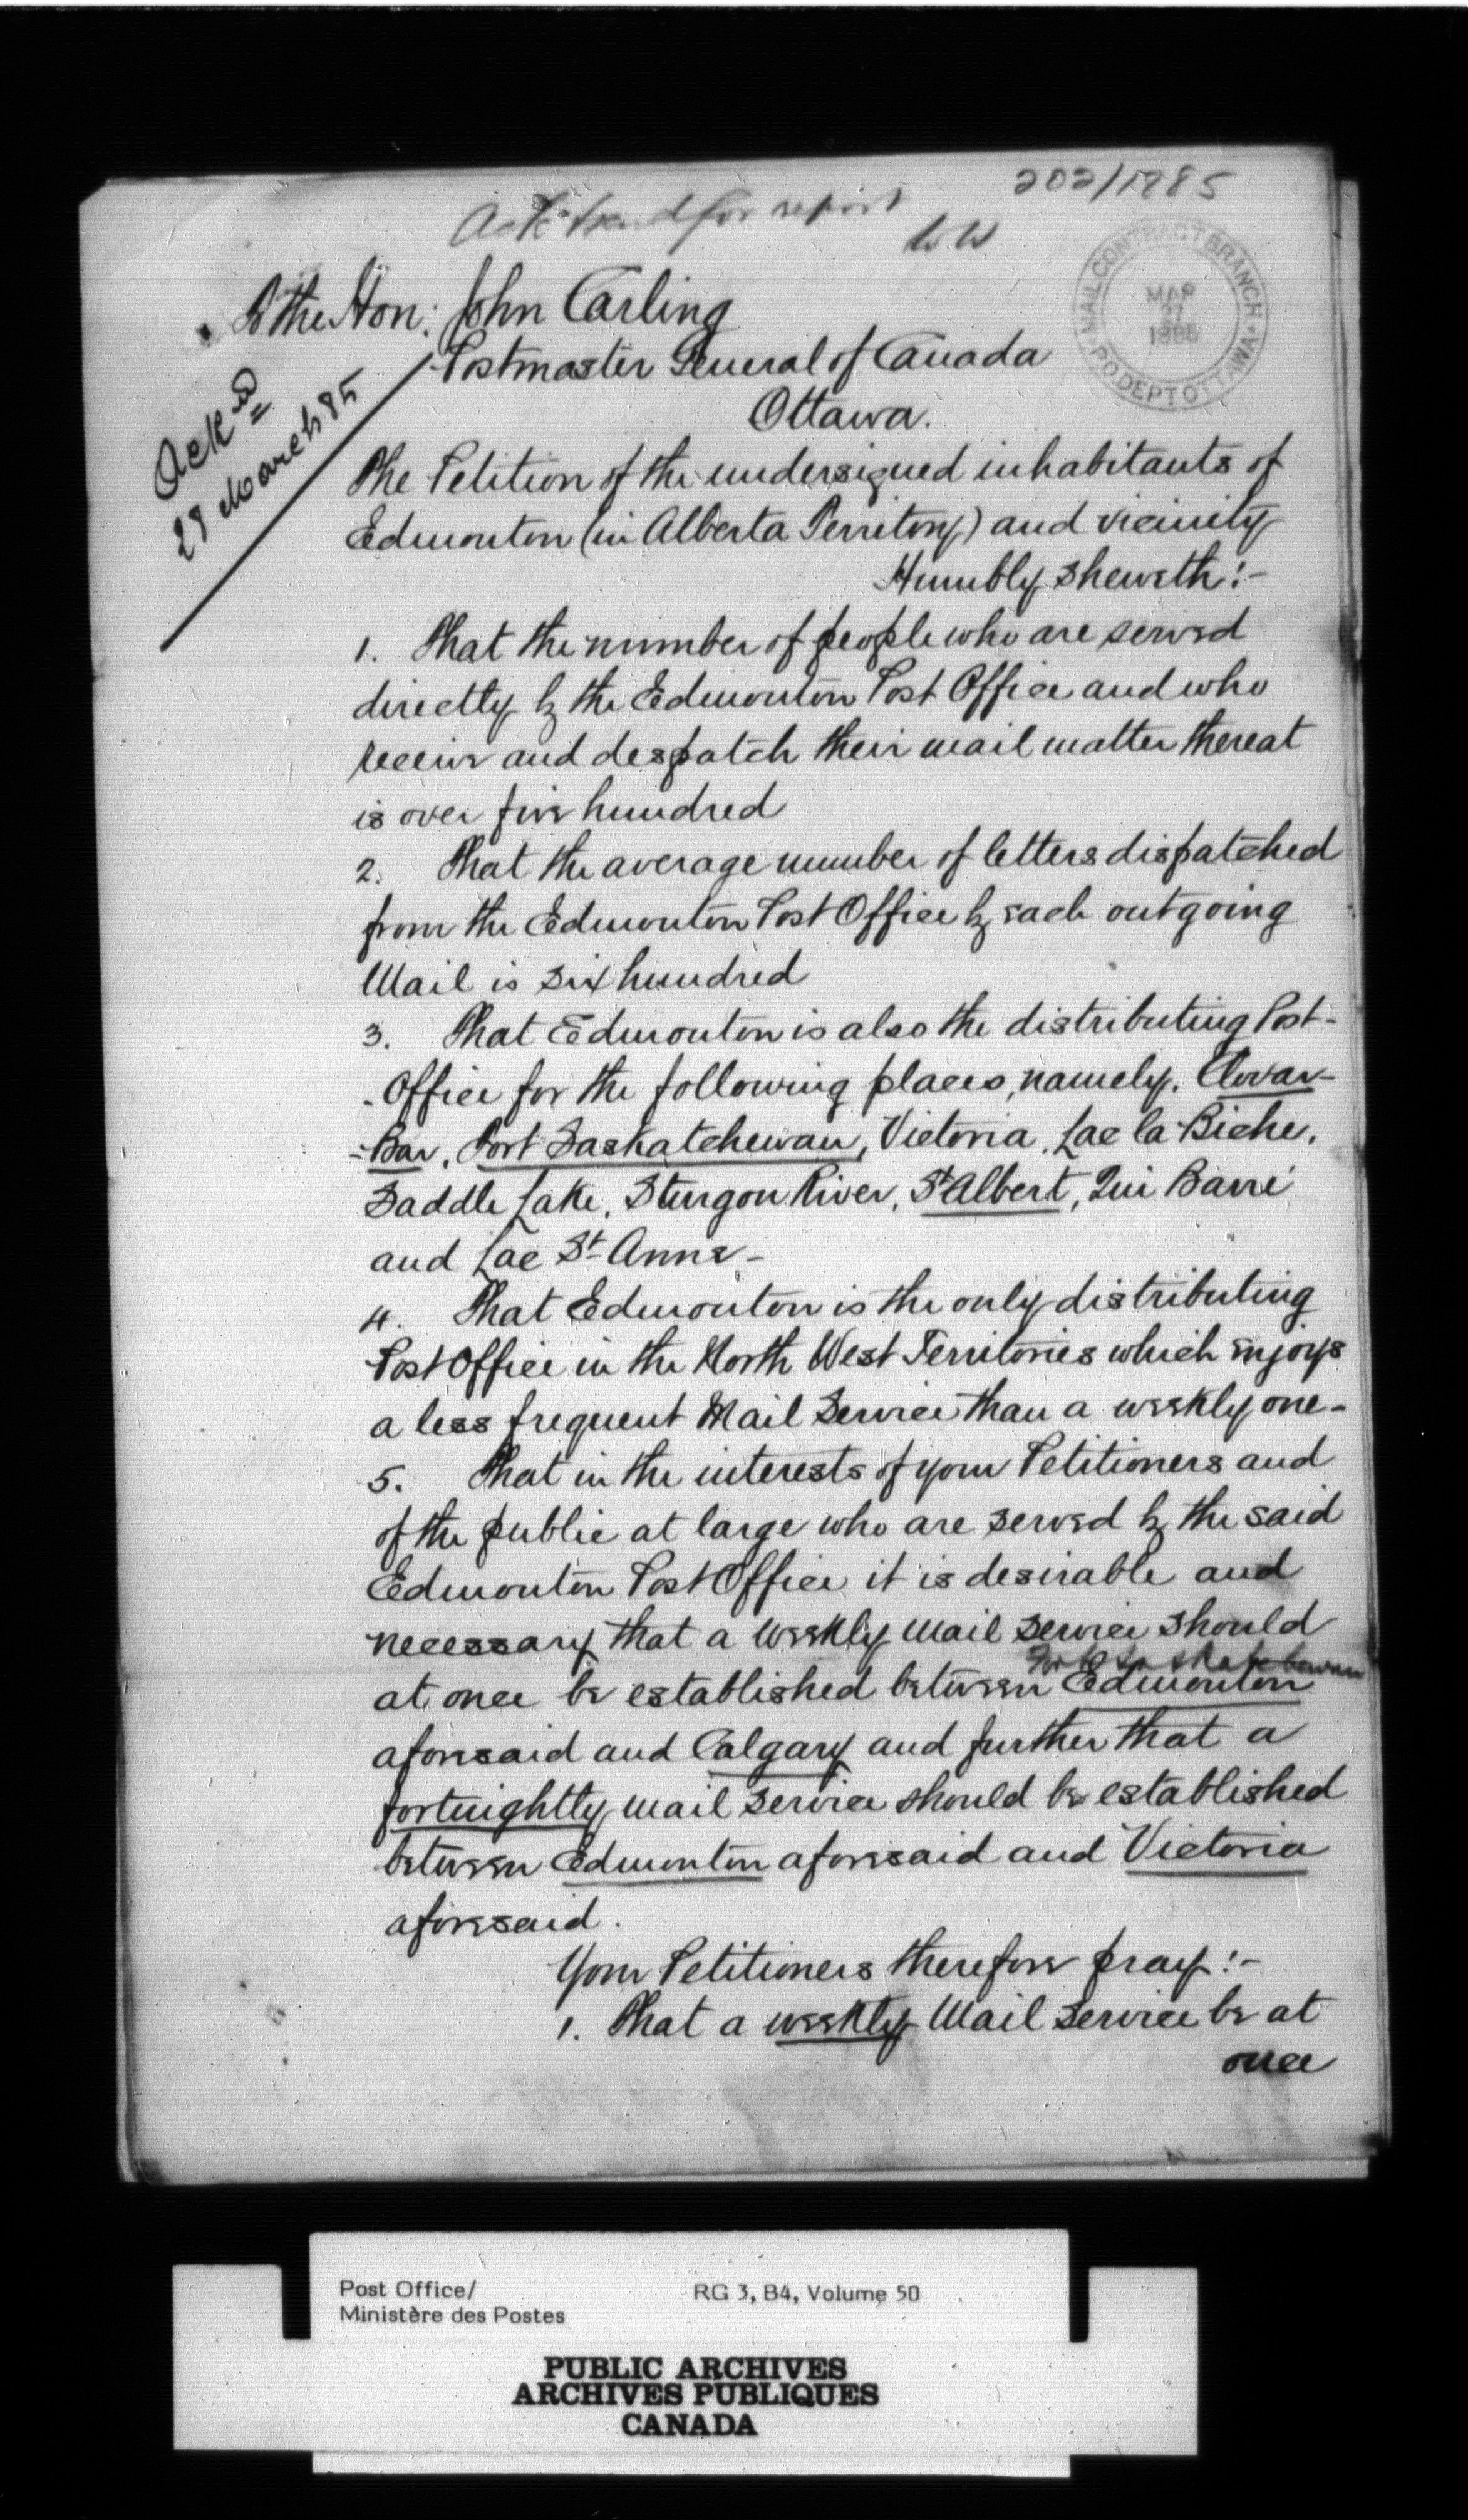 202/1885
Ack & send for report
WW
MAIL CONTRACT BRANCH
MAR
27
1885
P.O. DEPT OTTAWA
To the Hon: John Carling
Postmaster General of Canada
Ottawa.
Ackd
28 March 85
The Petition of the undersigned inhabitants of
Edmonton (in Alberta Territory) and vicinity
Humbly sheweth:-
1. That the number of people who are served
directly by the Edmonton Post Office and who
receive and despatch their mail matter thereat
is over five hundred
2. That the average number of letters dispatched
from the Edmonton Post Office by each outgoing
Mail is six hundred
3. That Edmonton is also the distributing Post-
-Office for the following places, namely. Clovar-
-Bar, Fort Saskatchewan, Victoria, Lac la Biche,
Saddle Lake, Sturgon River, St Albert, Qui Barré
and Lac St Anne-
4. That Edmonton is the only distributing
Post Office in the North West Territories which enjoys
a less frequent Mail Service than a weekly one-
5. That in the interests of your Petitioners and
of the public at large who are served by the said
Edmonton Post Office it is desirable and
necessary that a weekly mail service should
Fort Saskatchewan
at once be established between Edmonton
aforesaid and Calgary and further that a
fortnightly mail service should be established
between Edmonton aforesaid and Victoria
aforesaid.
Your Petitioners therefore pray:-
1. That a weekly Mail Service be at
once
Post Office/
Ministère des Postes
RG 3, B4, Volume 50
PUBLIC ARCHIVES
ARCHIVES PUBLIQUES
CANADA